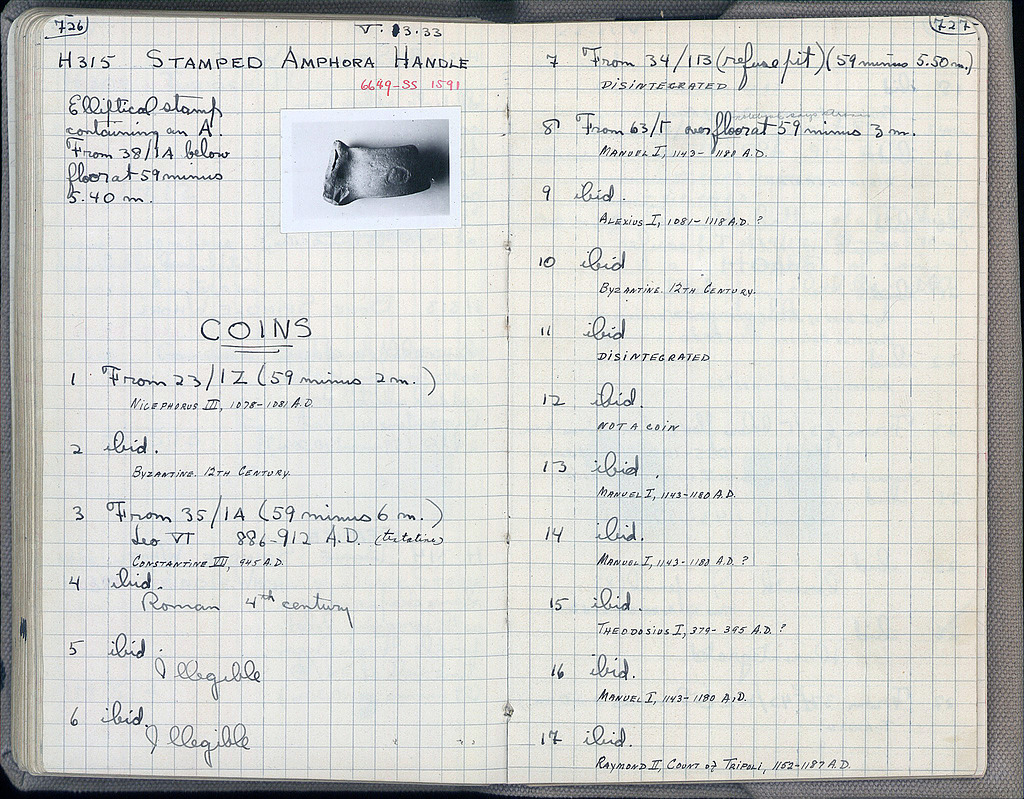 726
V. 13.33
H315 STAMPED AMPHORA HANDLE
6649-SS 1591
Elliptical stamp
containing an A.
From 38/1A below
floor at 59 minus
5.40 m.
COINS
1 From 23/1Z (59 minus 2 m.)
NICEPHORUS III, 1078-1081 A.D.
2 ibid.
BYZANTINE. 12TH CENTURY.
3 From 35/1A (59 minus 6 m.)
Leo VI 886-912 A.D.
CONSTANTINE VII, 945 A.D.
4 ibid.
Roman 4th century
5 ibid.
Illegible
6 ibid.
Illegible
727
7 From 34/1B (refuse pit) (59 minus 5.50 m.)
DISINTEGRATED
8 From 63/Γ over floor at 59 minus 3 m.
MANUEL I, 1143-1180 A.D.
9 ibid.
ALEXIUS I, 1081-1118 A.D. ?
10 ibid
BYZANTINE. 12TH CENTURY.
11 ibid
DISINTEGRATED
12 ibid.
NOT A COIN
13 ibid.
MANUEL I, 1143-1180 A.D.
14 ibid.
MANUEL I, 1143-1180 A.D. ?
15 ibid.
THEODOSIUS I, 379-395 A.D. ?
16 ibid.
MANUEL I, 1143-1180 A.D.
17 ibid.
RAYMOND II, COUNT OF TRIPOLI, 1152-1187 A.D.